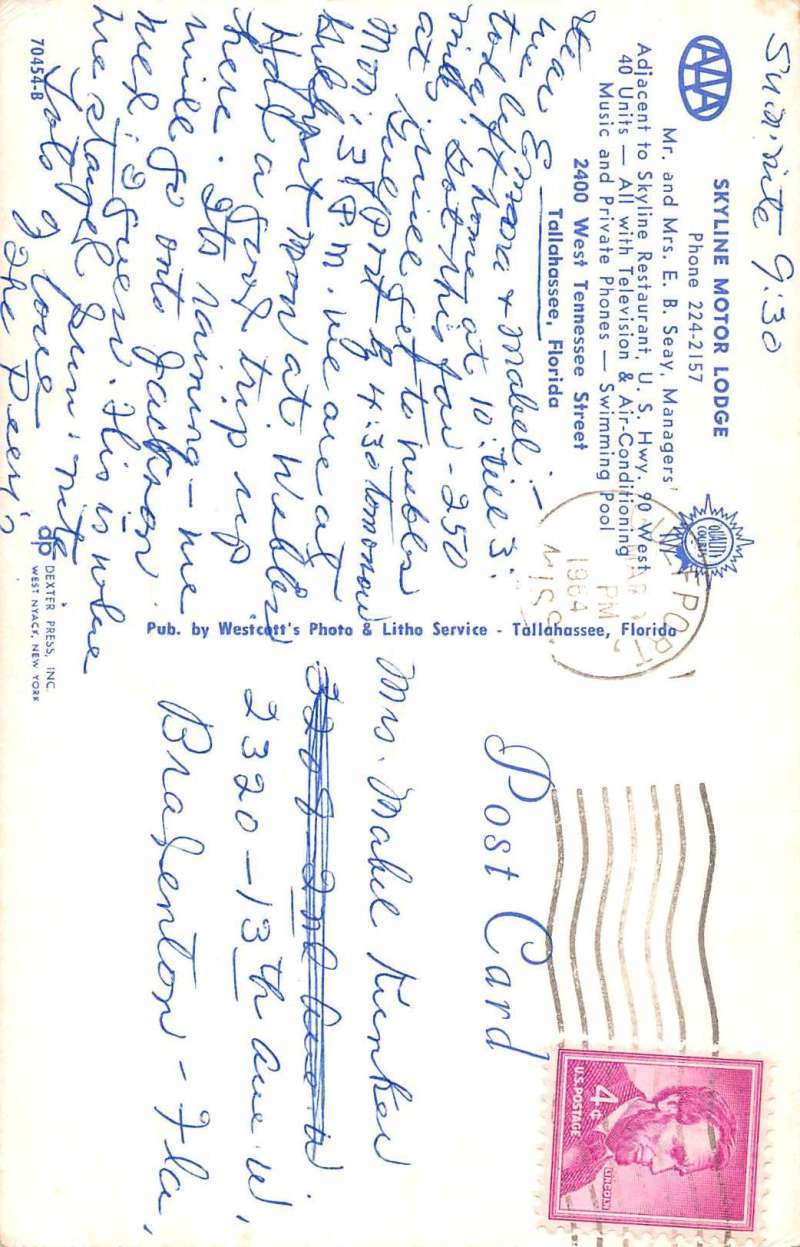 Sun. nite 9:30
AAA
SKYLINE MOTOR LODGE
Phone 224-2157
Mr. and Mrs. E. B. Seay, Managers
Adjacent to Skyline Restaurant, U. S. Hwy. 90 West
40 Units — All with Television & Air-Conditioning
Music and Private Phones — Swimming Pool
2400 West Tennessee Street
Tallahassee, Florida
QUALITY COURTS
Dear Emma & Mabel:—
we left home at 10: till 3:
today. Got this far - 250
miles. will get to
at Gulfport by 4:30 tomorrow
Mon. 3 P.M. we are at
Gulfport now at Webbers
Had a good trip up
here. Its raining — we
will go onto Jackson
Wed. I guess. This is where
we stayed Sun. nite
Lots of love
The Peery's
70454-B
dp DEXTER PRESS, INC.
WEST NYACK, NEW YORK
Pub. by Westcott's Photo & Litho Service - Tallahassee, Florida
GULFPORT
MAR
PM
1964
MISS.
Post Card
4¢
U.S. POSTAGE
LINCOLN
Mrs. Mabel Kunker
2320 - 13th Ave W,
Bradenton - Fla,